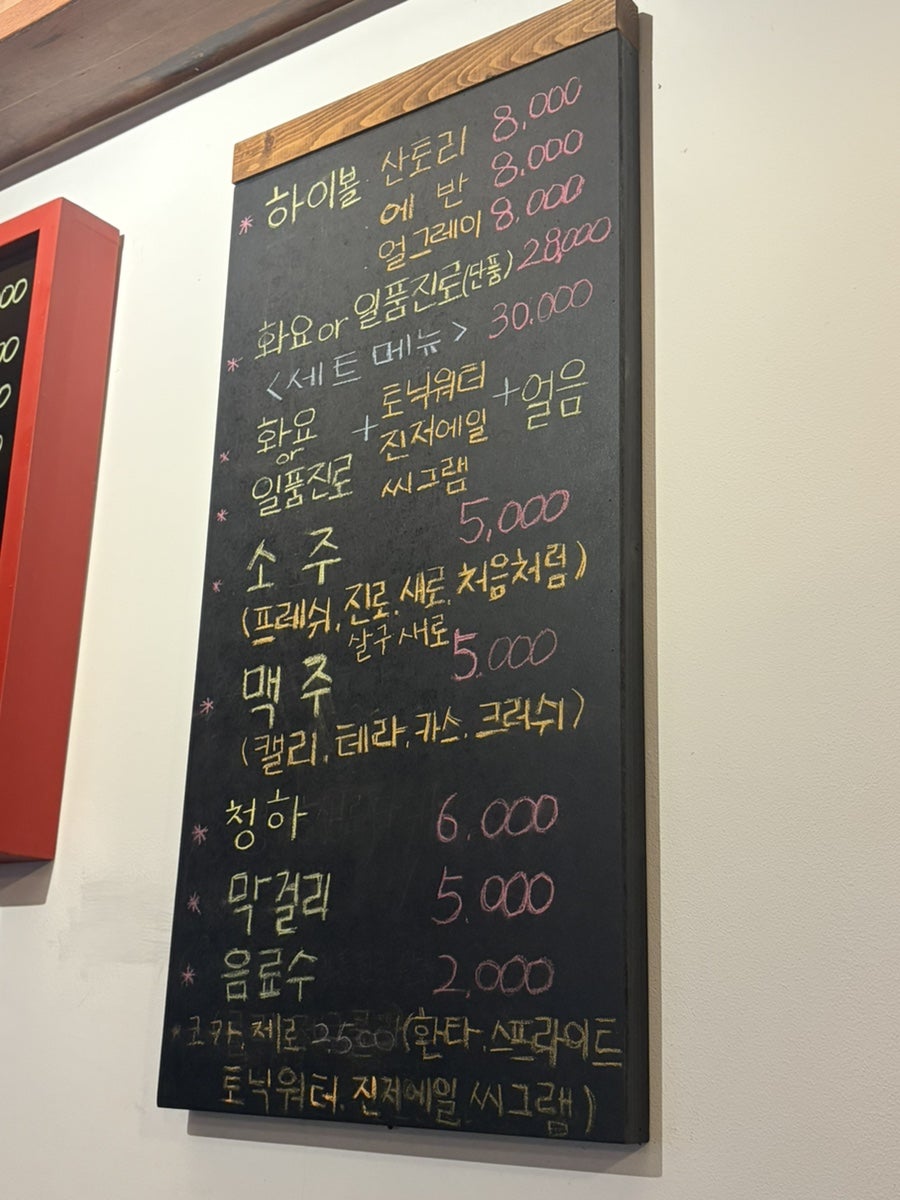 * 하이볼 산토리 8,000
에 반 8,000
얼그레이 8,000
* 화요 or 일품진로(단품) 28,000
<세트 메뉴> 30,000
* 화요 + 토닉워터 + 얼음
or 진저에일
* 일품진로 씨그램
* 소 주 5,000
(프레쉬, 진로, 새로, 처음처럼)
살구 새로
* 맥 주 5,000
(캘리, 테라, 카스, 크러쉬)
* 청하 6,000
* 막걸리 5,000
* 음료수 2,000
* 코카, 제로 2500 (환타, 스프라이트
토닉워터, 진저에일, 씨그램)
00
00
0